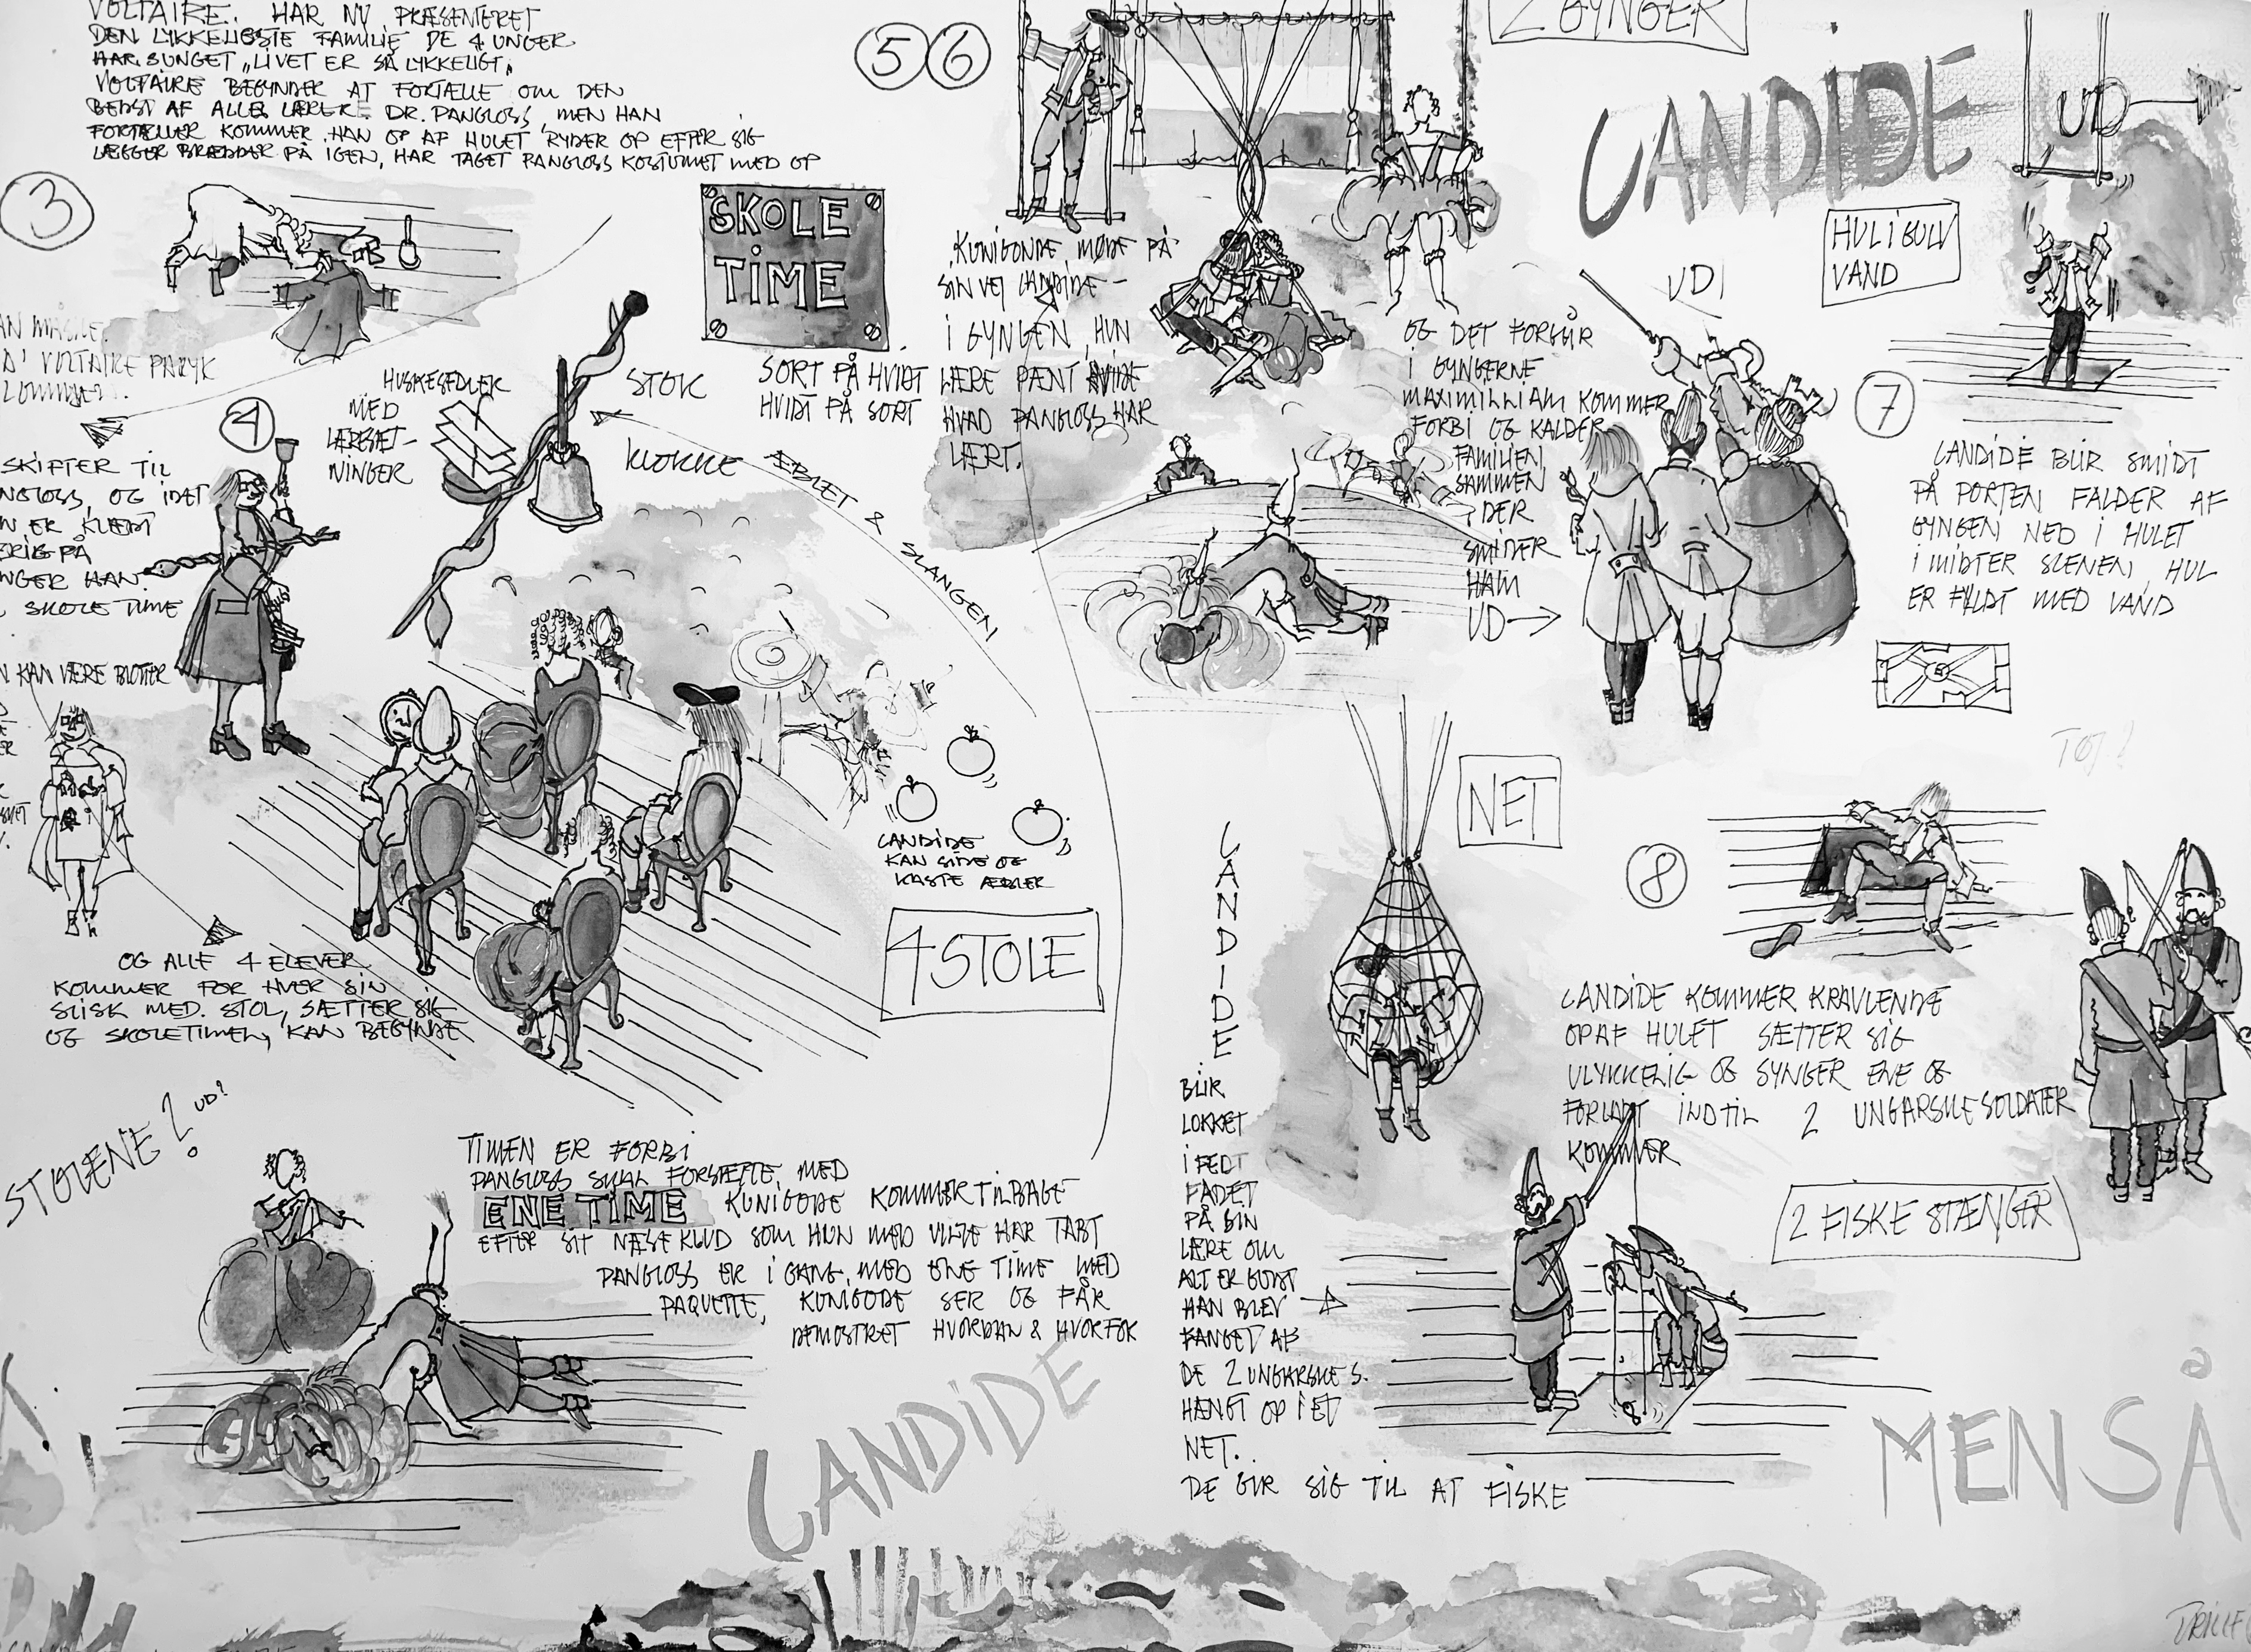 VOLTAIRE. HAR NU PRÆSENTERET
DEN LYKKELIGSTE FAMILIE DE 4 UNGER
HAR SUNGET „LIVET ER SÅ LYKKELIGT„
VOLTAIRE BEGYNDER AT FORTÆLLE OM DEN
BEDST AF ALLE LÆRER DR. PANGLOSS, MEN HAN
FORTÆLLER KOMMER HAN OP AF HULET RYDER OP EFTER SIG
LÆGGER BRÆDDER PÅ IGEN, HAR TAGET PANGLOSS KOSTUMET MED OP
3
VOLTAIRE PARYK
SKOLE
TIME
SORT PÅ HVIDT
HVIDT PÅ SORT
HUSKESEDLER
MED
LÆRESÆT-
NINGER
STOK
KLOKKE
ÆBLET & SLANGEN
4
SKIFTER TIL
OG IDET
ER KLÆDT
PÅ
HAN
SKOLE TIME
KAN VÆRE BLOTTER
OG ALLE 4 ELEVER
KOMMER FOR HVER SIN
SLISK MED. STOL, SÆTTER SIG
OG SKOLETIMEN, KAN BEGYNDE
CANDIDE
KAN SIDE OG
KASTE ÆBLER
4 STOLE
STOLENE? UD?
TIMEN ER FORBI
PANGLOSS SKAL FORSÆTTE, MED
ENE TIME KUNIGODE KOMMER TILBAGE
EFTER SIT NÆSEKLUD SOM HUN MED VILJE HAR TABT
PANGLOSS ER I GANG, MED ENE TIME MED
PAQUETTE, KUNIGODE SER OG FÅR
DEMOSTRET HVORDAN & HVORFOR
CANDIDE
5 6
2 GYNGER
KUNIGONDE, MØDE PÅ
SIN VEJ CANDIDE -
I GYNGEN, HUN
LÆRE PÆNT
HVAD PANGLOSS HAR
LÆRT.
OG DET FORGÅR
I GYNGERNE
MAXIMILLIAM KOMMER
FORBI OG KALDER
FAMILIEN
SAMMEN
DER
SMIDER
HAM
UD
UD!
CANDIDE
UD
HUL I GULV
VAND
7
CANDIDE BLIR SMIDT
PÅ PORTEN FALDER AF
GYNGEN NED I HULET
I MIDTER SCENEN, HUL
ER FYLDT MED VAND
TØJ!
NET
8
CANDIDE KOMMER KRAVLENDE
OP AF HULET SÆTTER SIG
ULYKKELIG OG SYNGER ENE OG
FORLADT INDTIL 2 UNGARSKE SOLDATER
KOMMER
2 FISKE STÆNGER
CANDIDE
BLIR
LOKKET
I FEDT
FADET
PÅ SIN
LÆRE OM
ALT ER GODT
HAN BLEV
FANGET AF
DE 2 UNGARSKE S.
HÆNGT OP I ET
NET..
DE GIR SIG TIL AT FISKE
MEN SÅ